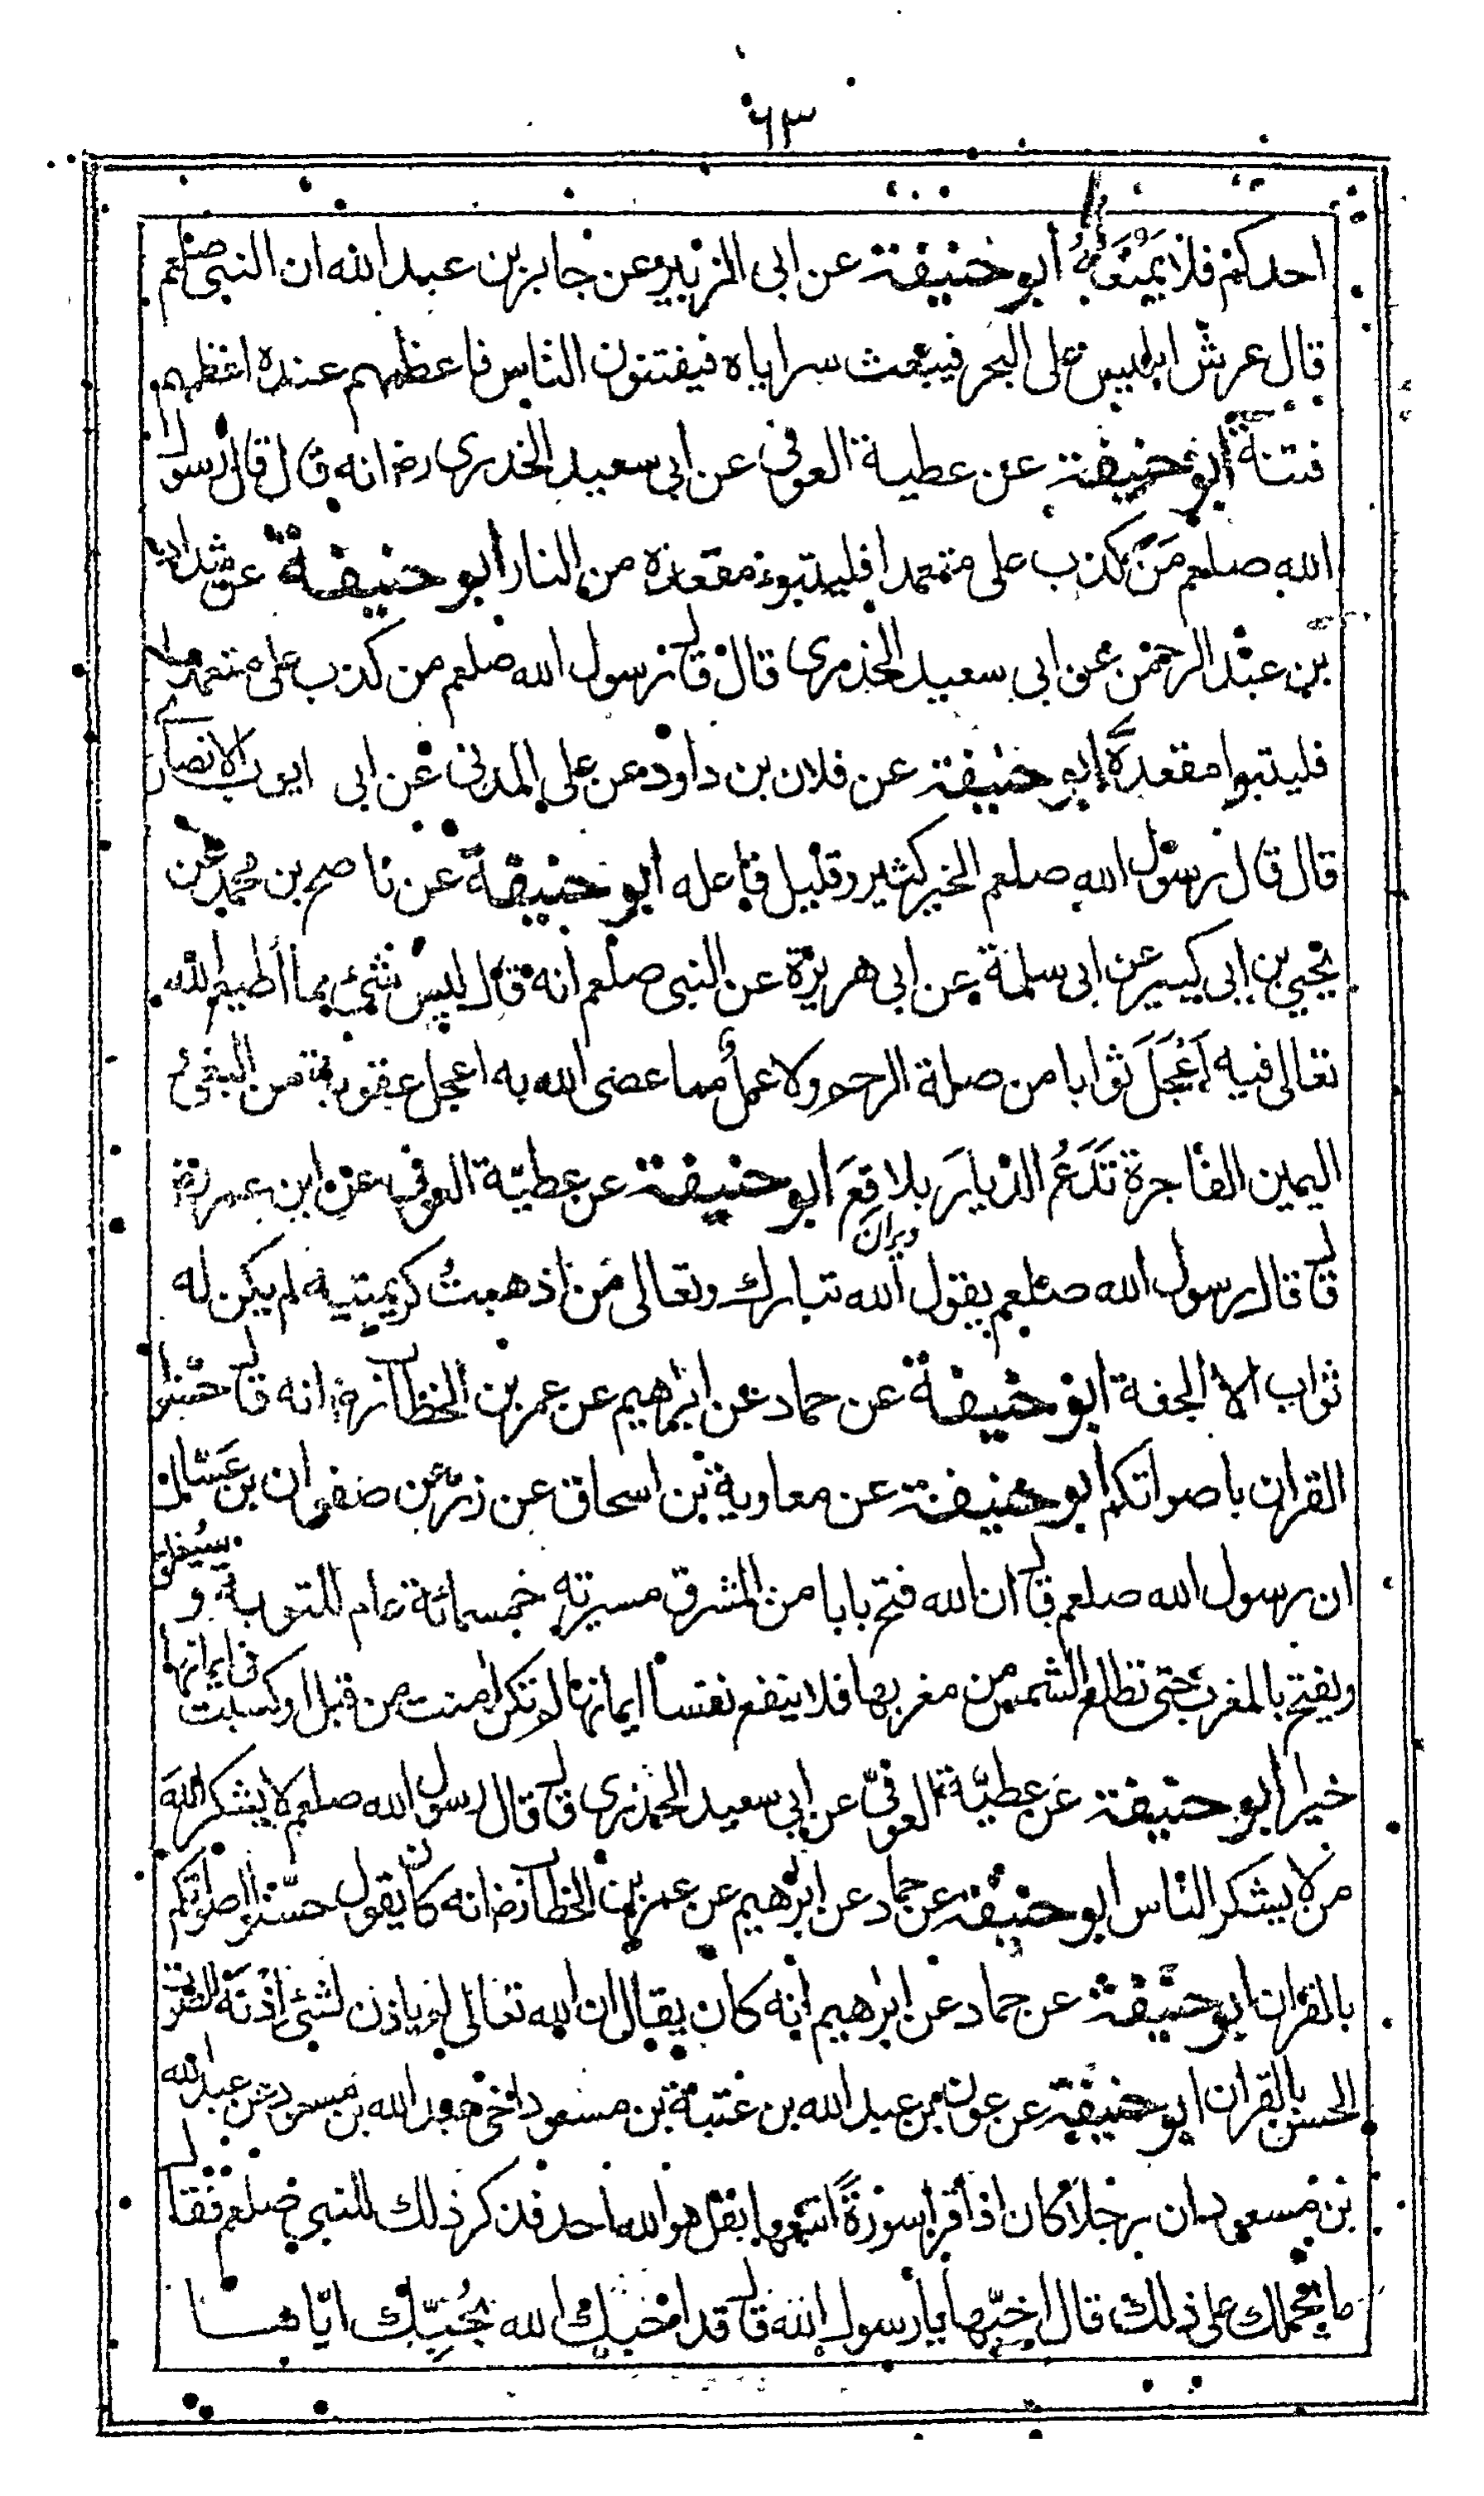 ٦٣
احدكم فلا يمنعه ابو حنيفة عن ابى الزبير عن جابر بن عبد الله ان النبى صلعم
قال عرش ابليس على البحر فيبعث سراياه فيفتنون الناس فاعظمهم عنده اعظمهم
فتنة ابو حنيفة عن عطية العوفى عن ابى سعيد الخدرى رض انه قال قال رسول
الله صلعم من كذب على متعمدا فليتبوء مقعده من النار ابو حنيفة عن شداد
بن عبد الرحمن عن ابى سعيد الخدرى قال قال رسول الله صلعم من كذب على متعمدا
فليتبوا مقعده ابو حنيفة عن فلان بن داود عن على المدنى عن ابى ايوب الانصارى
قال قال رسول الله صلعم الخير كثير وقليل فاعله ابو حنيفة عن ناصح بن محمد عن
يحيى بن ابى كبير عن ابى سلمة عن ابى هريرة عن النبى صلعم انه قال ليس شئ مما اطيع الله
تعالى فيه اَعْجَلَ ثوابا من صلة الرحم ولا عمل مما عصى الله به اعجل عقوبة من البغى و
اليمين الفاجرة تَدَعُ الديارَ بلاقِعَ ابو حنيفة عن عطيّة العوفى عن ابن عمر رض
ويران
قال قال رسول الله صلعم يقول الله تبارك وتعالى من اذهبتُ كريمتيه لم يكن له
ثواب الا الجنة ابو حنيفة عن حماد عن ابرهيم عن عمر بن الخطاب رض انه قال حسنوا
القران باصواتكم ابو حنيفة عن معاوية بن اسحاق عن زر عن صفوان بن عَسّال
ان رسول الله صلعم قال ان الله فتح بابا من المشرق مسيرته خمسمائة عام للتوبة و
ويفتح بالمغرب حتى تطلع الشمس من مغربها فلا ينفع نفسا ايمانها لم تكن امنت من قبل او كسبت فى ايمانها
خيرا ابو حنيفة عن عطيّة العوفىّ عن ابى سعيد الخدرى قال قال رسول الله صلعم لا يشكر اللهَ
من لا يشكر الناس ابو حنيفة عن حماد عن ابرهيم عن عمر بن الخطاب رض انه كان يقول حسّنوا اصواتكم
بالقران ابو حنيفة عن حماد عن ابرهيم انه كان يقال ان الله تعالى لم ياذن لشئ اذنه الصوت
الحسن بالقران ابو حنيفة عن عون بن عبد الله بن عتبة بن مسعود اخى عبد الله بن مسعود عن عبد الله
بن مسعود ان رجلا كان اذا قرا سورة اتبعها بقل هو الله احد فذكر ذلك للنبى صلعم فقال
ما يحملك على ذلك قال احبّها يا رسول الله قال قد احبك الله بحُبِّك ايّاها